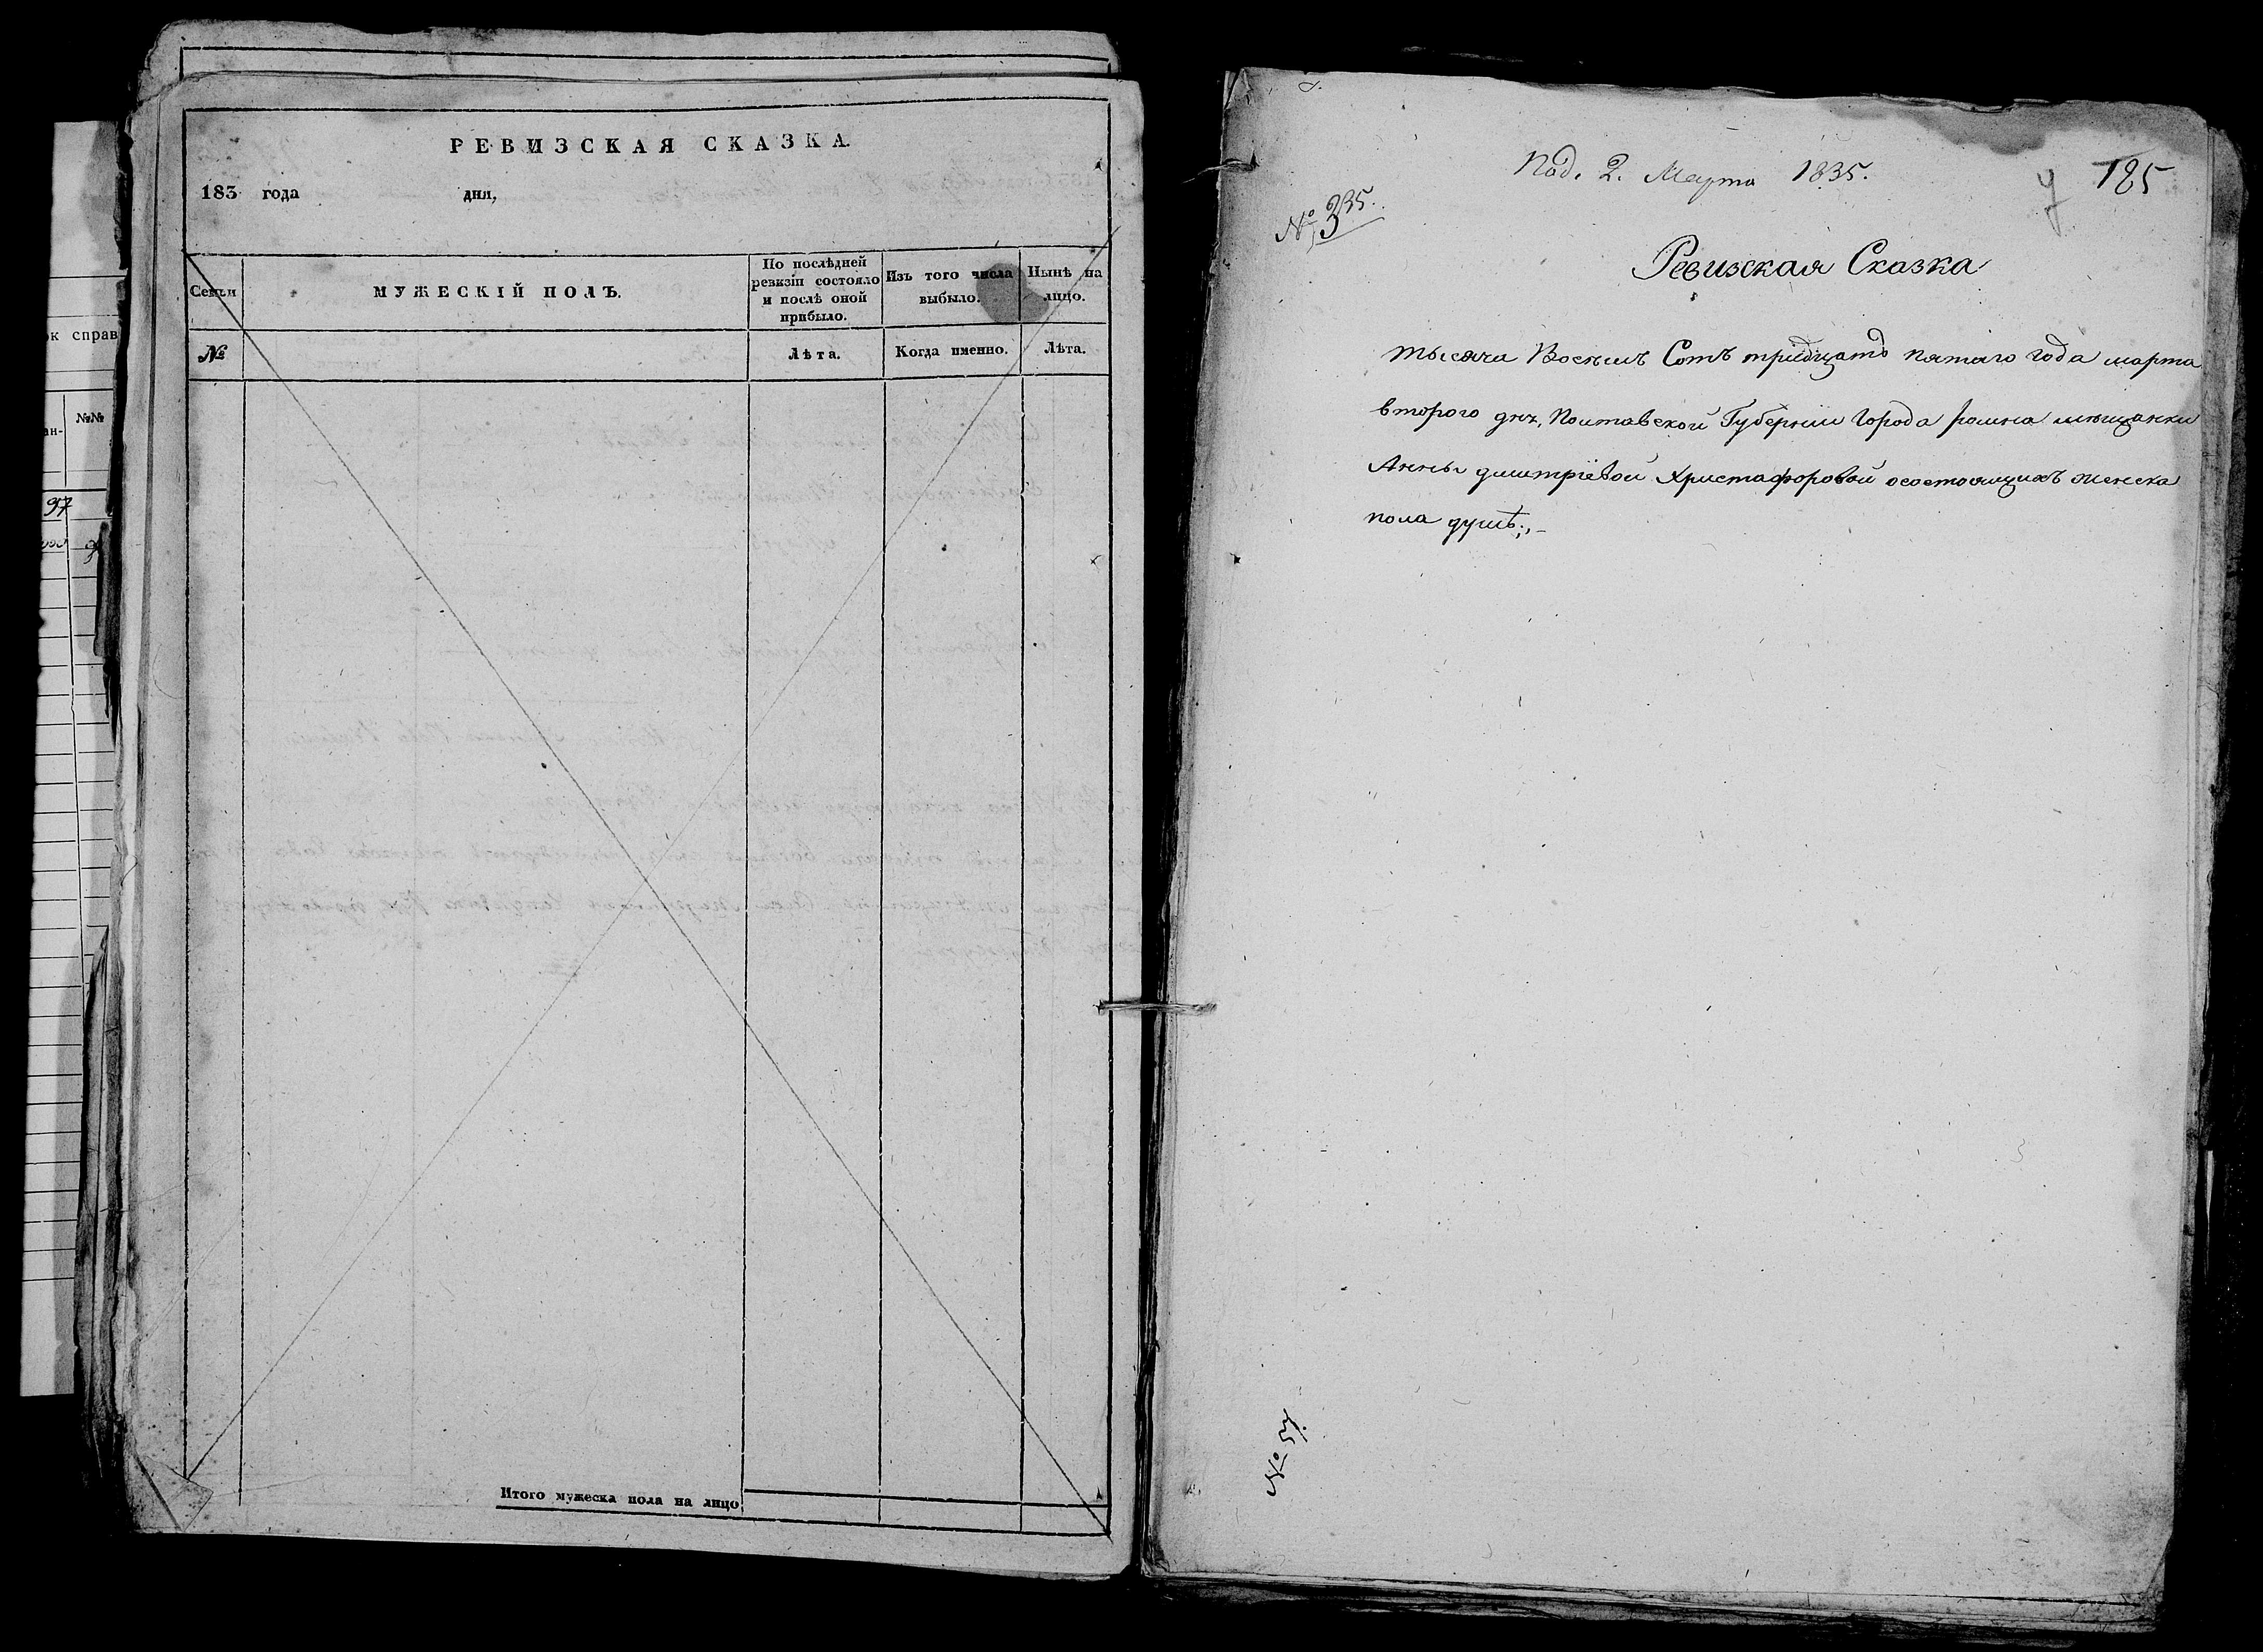 РЕВИЗСКАЯ СКАЗКА.
183 года дня,
Семьи
МУЖЕСКІЙ ПОЛЪ.
По послѣдней
ревизіи состояло
и послѣ оной
прибыло.
Изъ того числа
выбыло.
Нынѣ на
лицо.
№
Лѣта.
Когда именно.
Лѣта.
Итого мужеска пола на лицо
ок справ
ан-
№№
97
Под. 2. Марта 1835.
185
№ 335.
Ревизская Сказка
тысяча Восемъ Сотъ тридцать пятаго года марта
второго дня, Полтавской Губерніи Города ромна мѣщанки
Анны дмитріевой Христафоровой осостоящихъ женска
пола душъ.,-
№ 57.